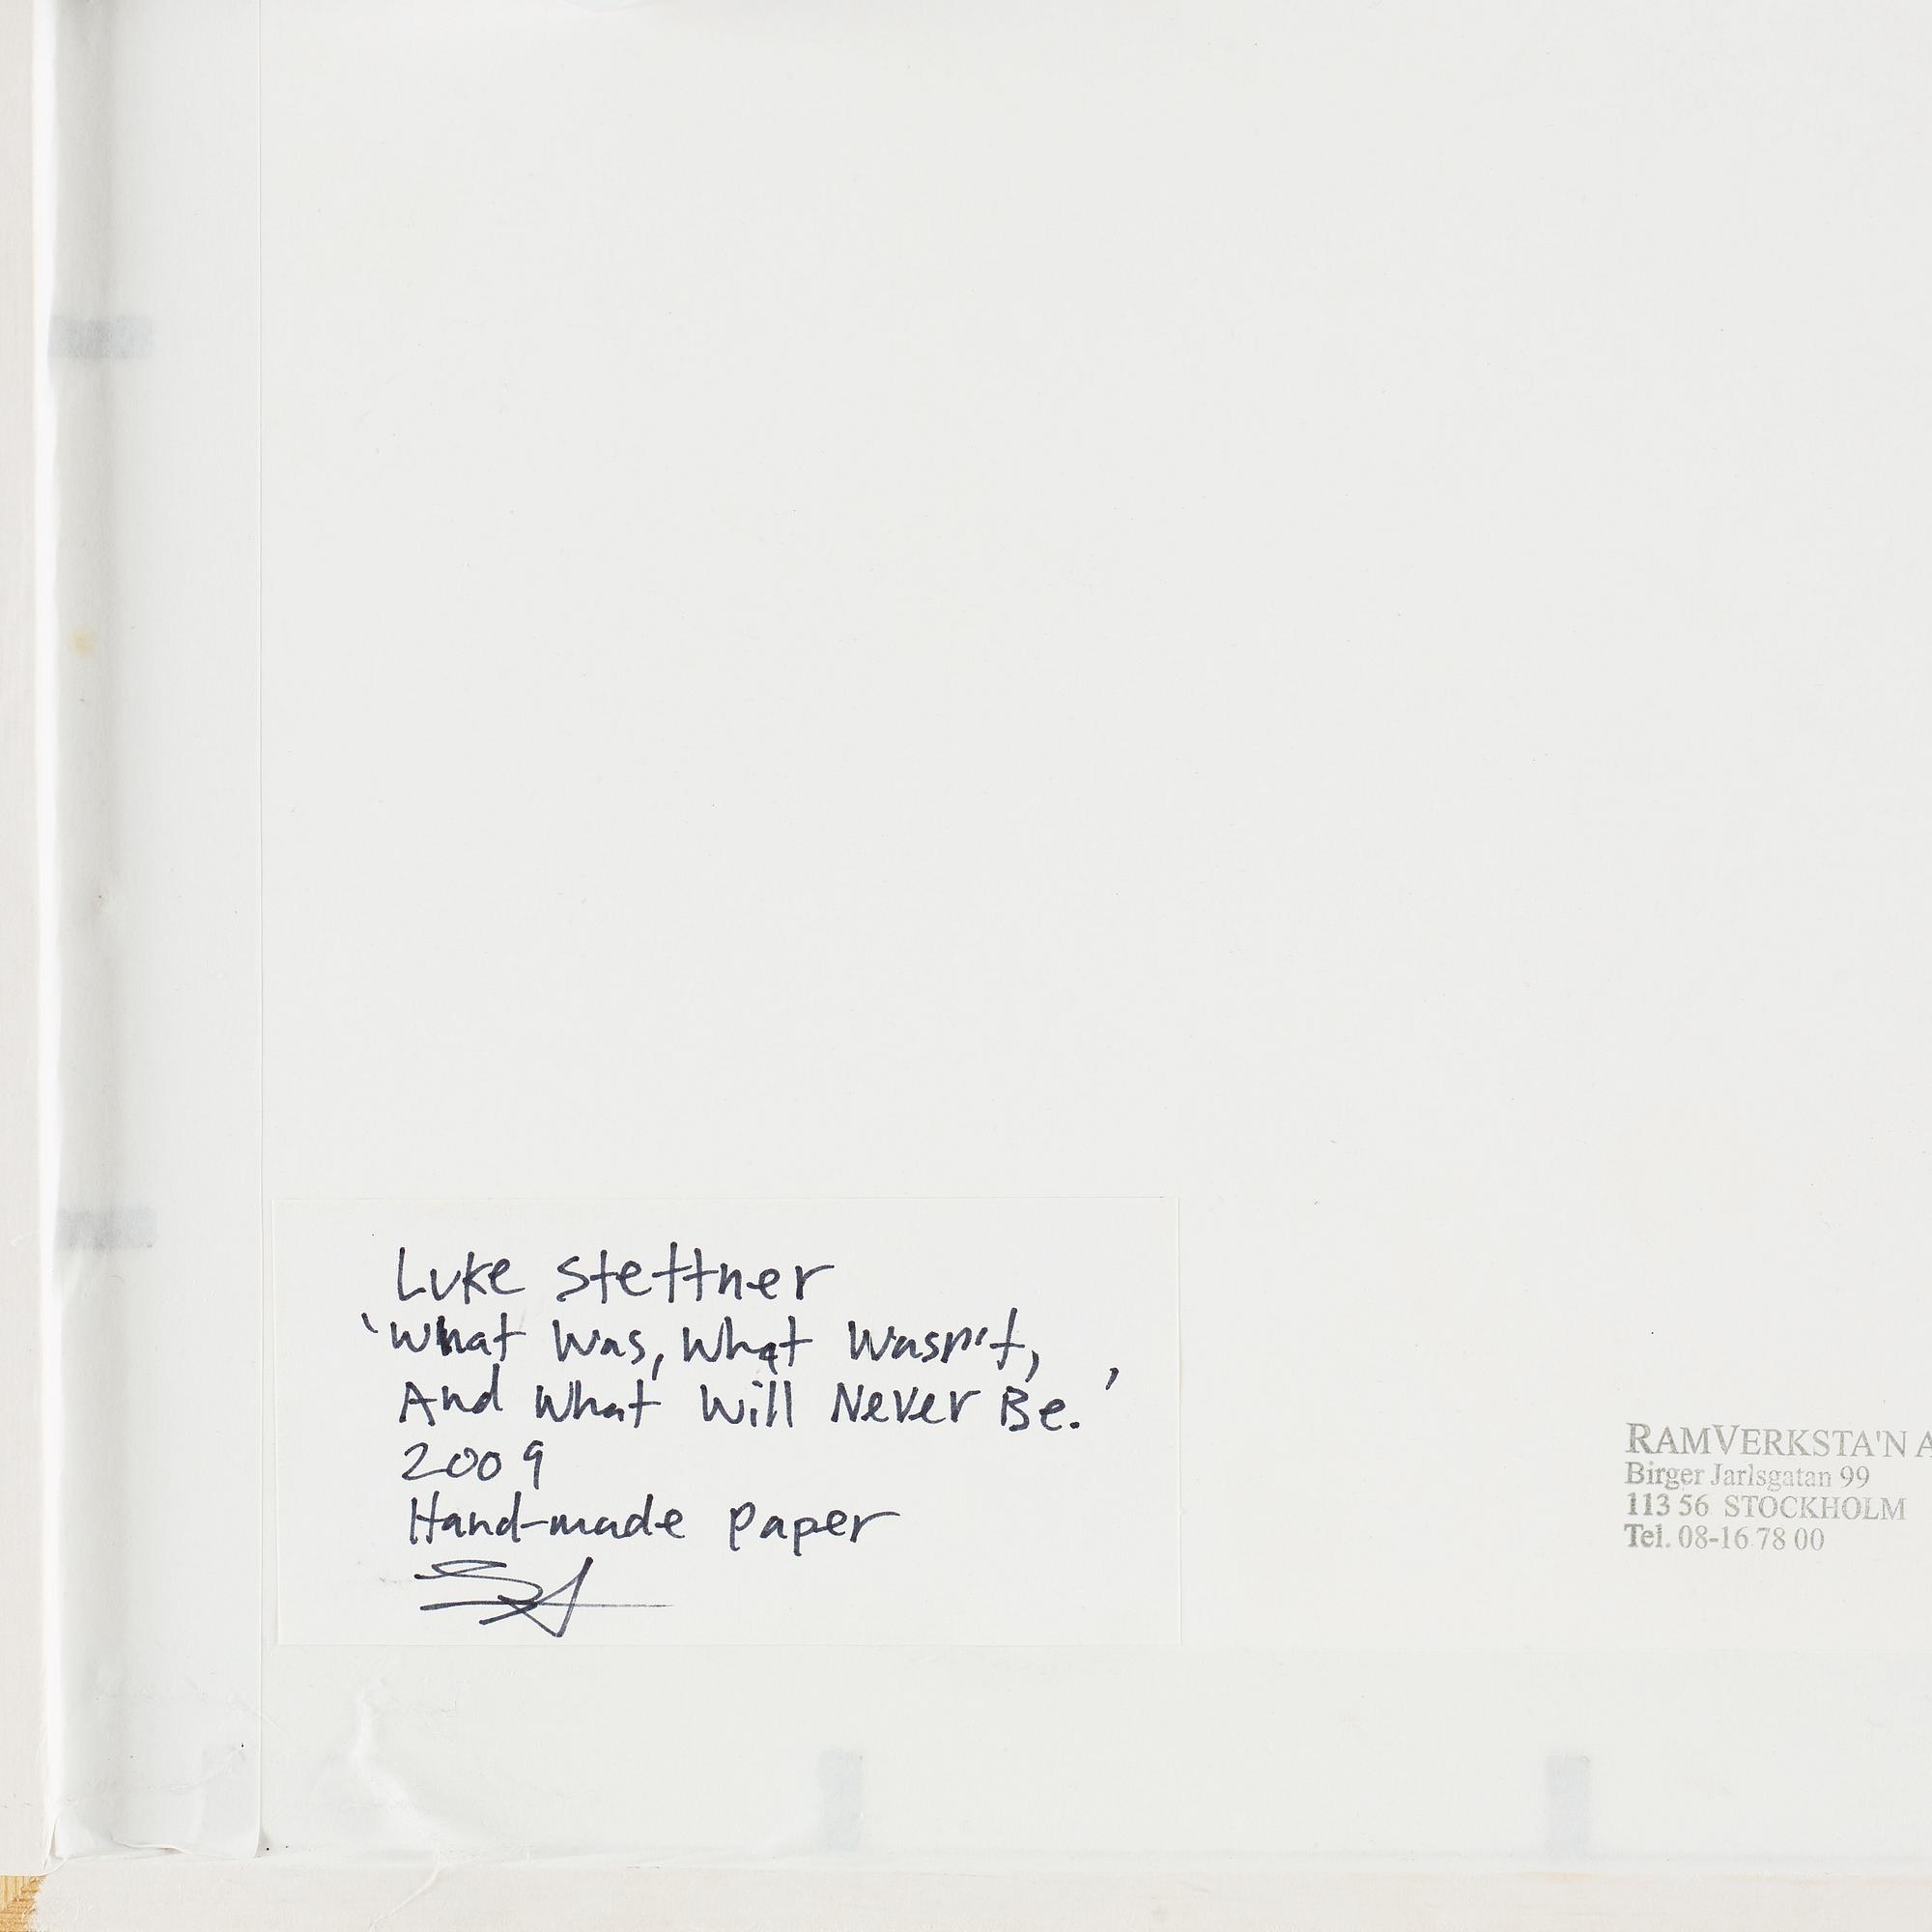 Luke Stettner
'What Was, What Wasn't,
And What Will Never Be.'
2009
Hand-made paper
RAMVERKSTA'N A
Birger Jarlsgatan 99
113 56 STOCKHOLM
Tel. 08-16 78 00